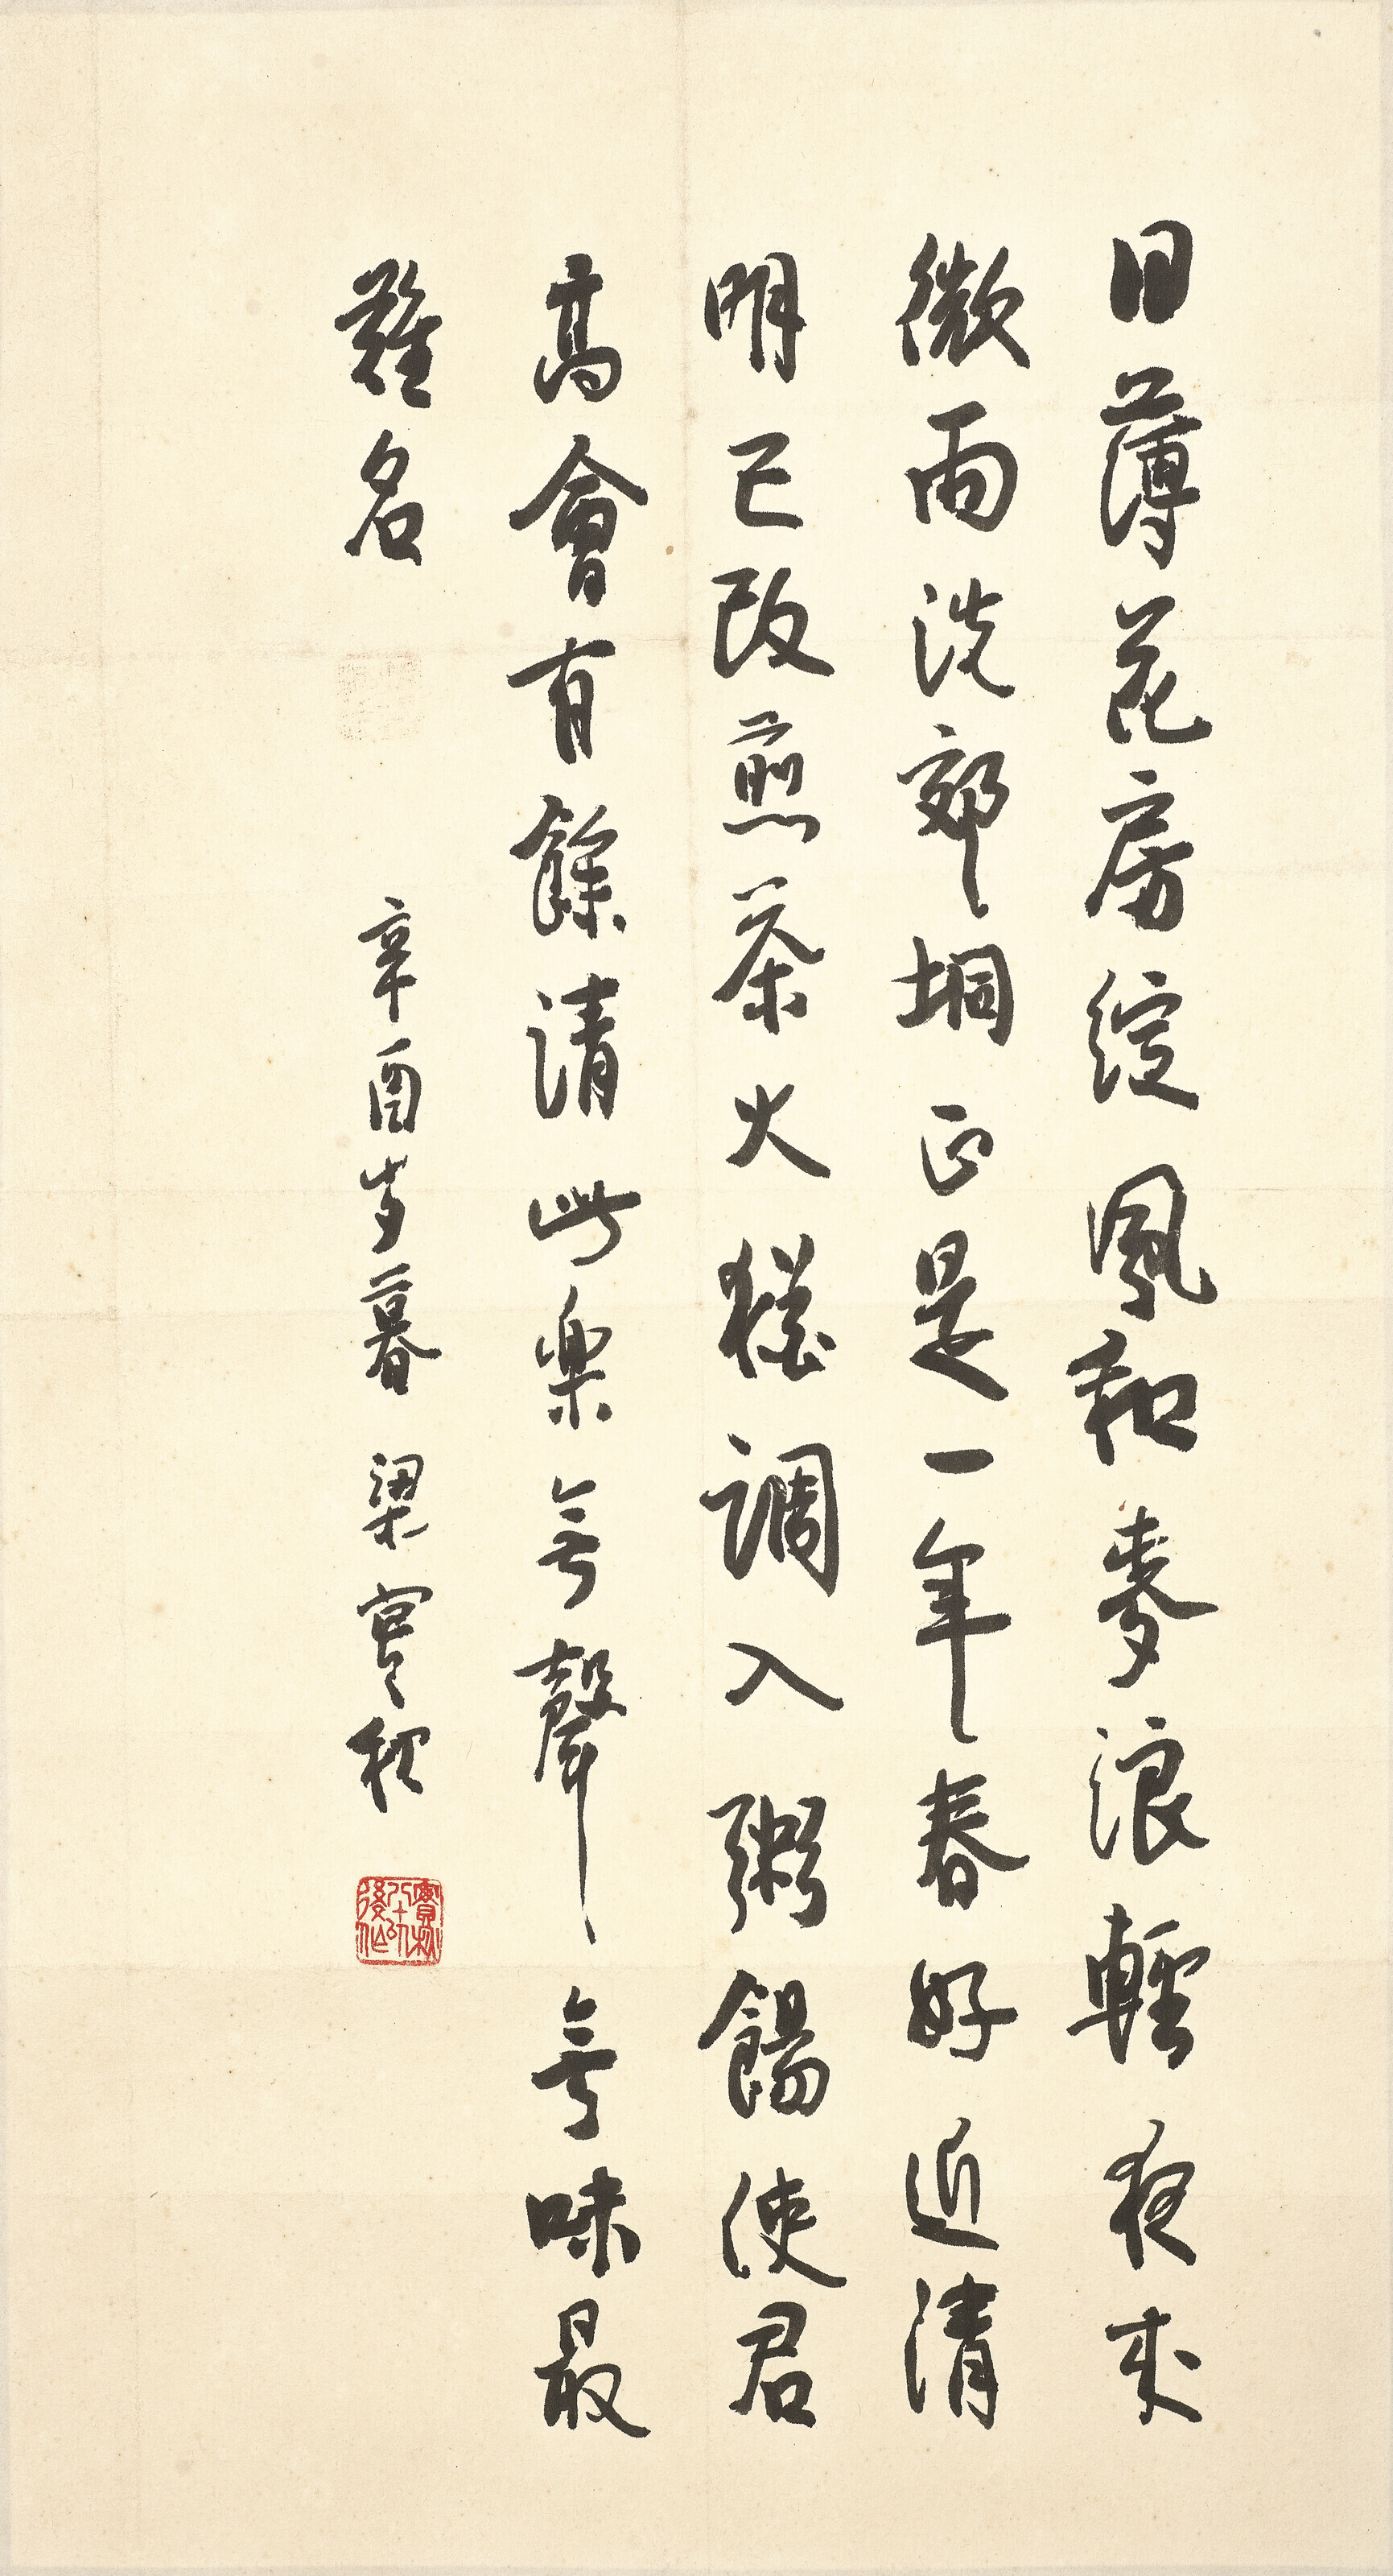 日薄花房綻風和麥浪輕夜來
微雨洗郊坰正是一年春好近清
明已改煎茶火猶調入粥餳使君
高會有餘清此樂無聲無味最
難名
辛酉歲暮 梁實秋
實秋八十後作